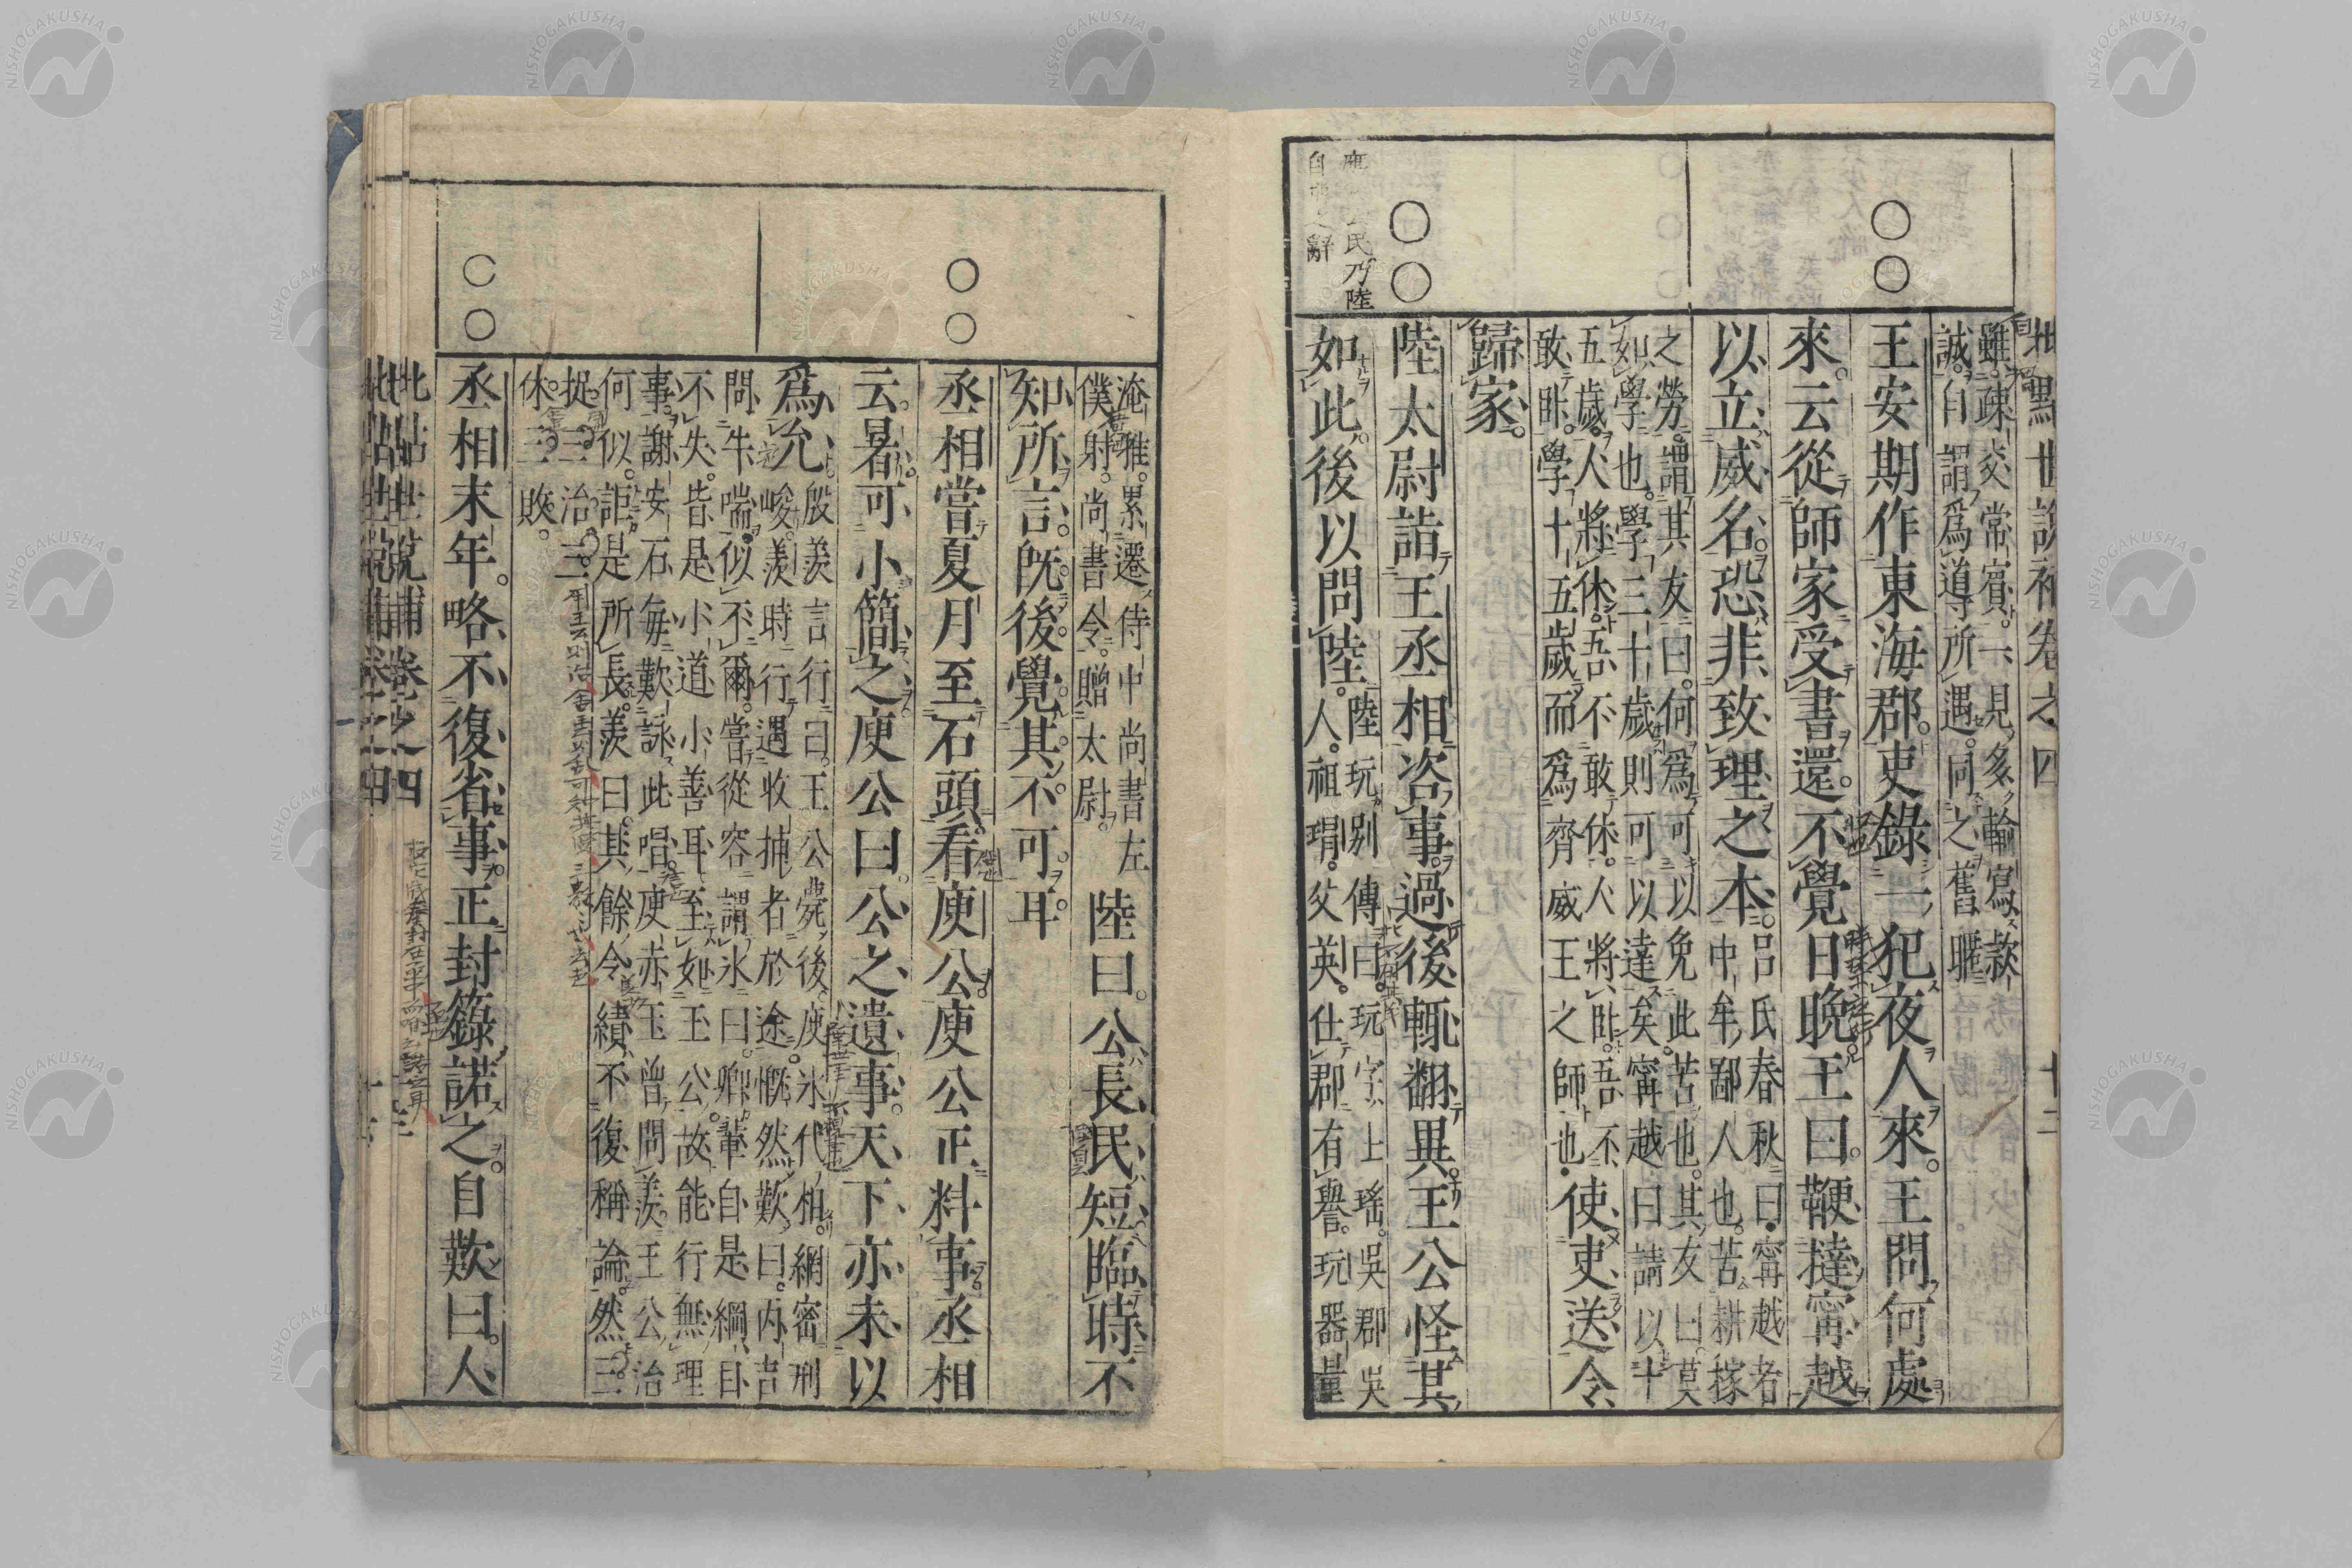 批點世說補卷之四
十二
雖疎交常賓一見多輸寫款
誠自謂爲導所遇同之舊暱
王安期作東海郡吏錄一犯夜人來王問何處
來云從師家受書還不覺日晚王曰鞭撻甯越
以立威名恐非致理之本
呂氏春秋曰甯越者
中牟鄙人也苦耕稼
之勞謂其友曰何爲可以免此苦也其友曰莫
如學也學三十歲則可以達矣甯越曰請以十
五歲人將休吾不敢休人將臥吾不
敢臥學十五歲而爲齊威王之師也
使吏送令
歸家
陸太尉詣王丞相咨事過後輒翻異王公怪其
如此後以問陸
陸玩别傳曰玩字士瑤吳郡吳
人祖瑁父英仕郡有譽玩器量
民乃陸
辭
淹雅累遷侍中尚書左
僕射尚書令贈太尉
陸曰公長民短臨時不
知所言既後覺其不可耳
丞相嘗夏月至石頭看庾公庾公正料事丞相
云暑可小簡之庾公曰公之遺事天下亦未以
爲允
殷羨言行曰王公薨後庾冰代相網密刑
峻羨時行遇收捕者於途慨然歎曰丙吉
問牛喘似不爾嘗從容謂冰曰卿輩自是網目
不失皆是小道小善耳至如王公故能行無理
事謝安石每歎詠此唱庾赤玉曾問羨王公治
何似詎是所長羨曰其餘令績不復稱論然三
捉三治三
休三敗
丞相末年略不復省事正封籙諾之自歎曰人
批點世說補卷之四
批點世說補卷之四
NISHOGAKUSHA